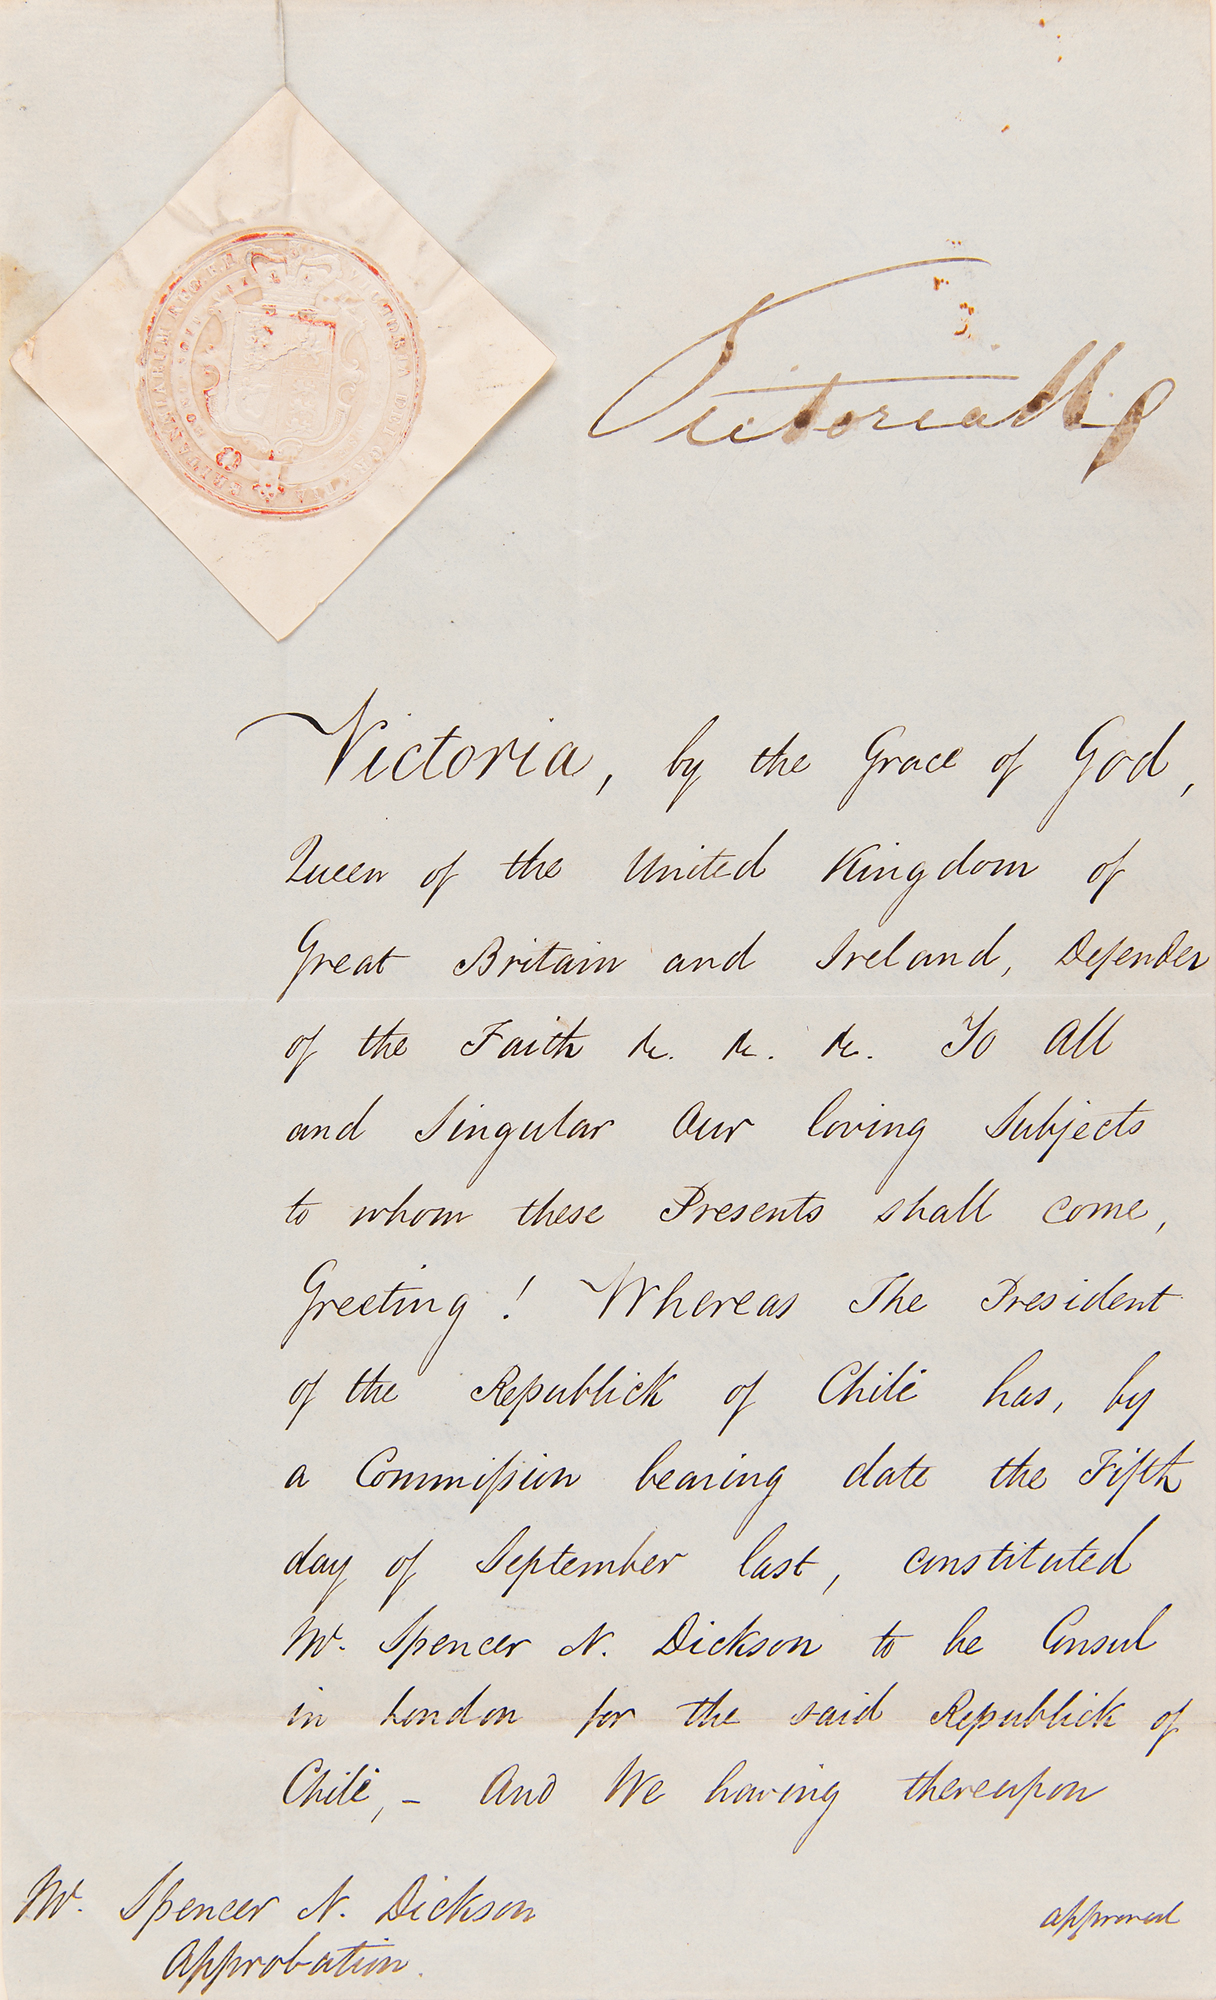 Victoria R
Victoria, by the Grace of God,
Queen of the United Kingdom of
Great Britain and Ireland, Defender
of the Faith &c. &c. &c. To All
and Singular Our loving Subjects
to whom these Presents shall come,
Greeting! Whereas The President
of the Republick of Chile has, by
a Commission bearing date the Fifth
day of September last, constituted
Mr. Spencer N. Dickson to be Consul
in London for the said Republick of
Chile,– And We having thereupon
Mr. Spencer N. Dickson
Approbation.
approved